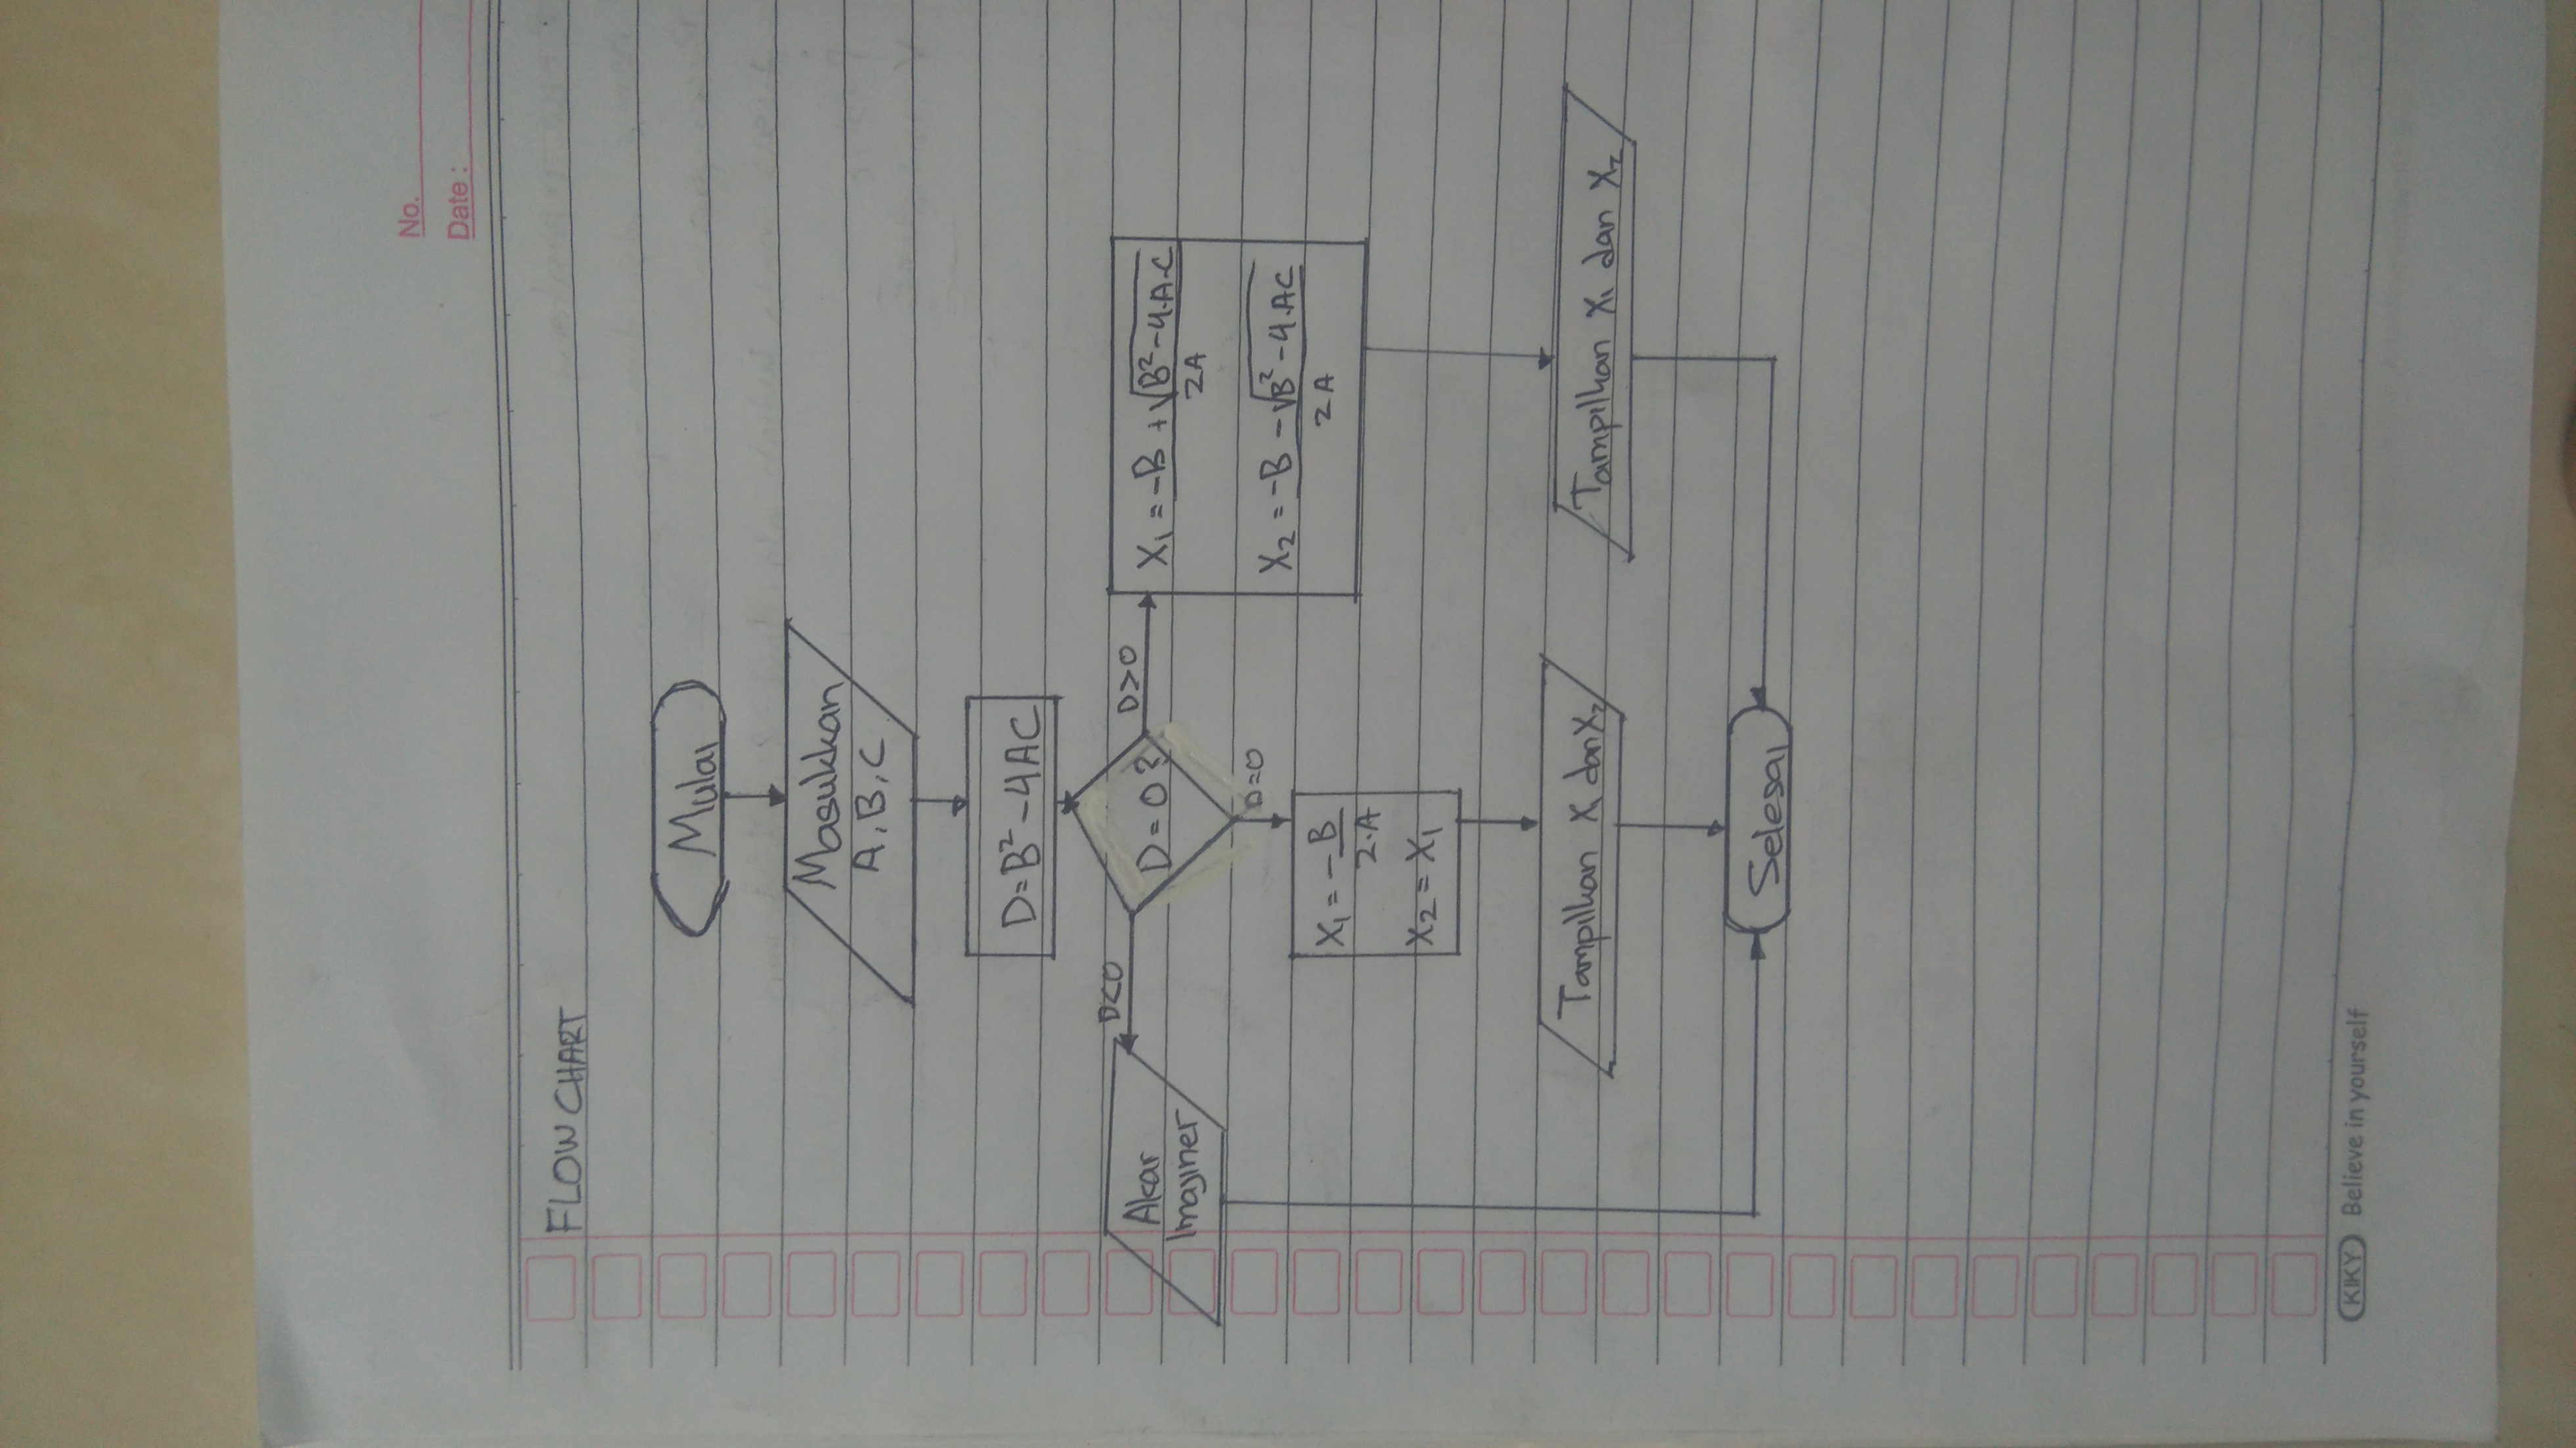 No.
Date:
FLOW CHART
Mulai
Masukkan
A, B, C
D=B²-4AC
D = 0 ?
D<0
D>0
D=0
Akar
Imajiner
X₁ = -B + √B²-4.A.C
2A
X₂ = -B - √B²-4.AC
2A
X₁ = -B
2.A
X₂ = X₁
Tampilkan X₁ dan X₂
Tampilkan X₁ dan X₂
Selesai
KIKY Believe in yourself